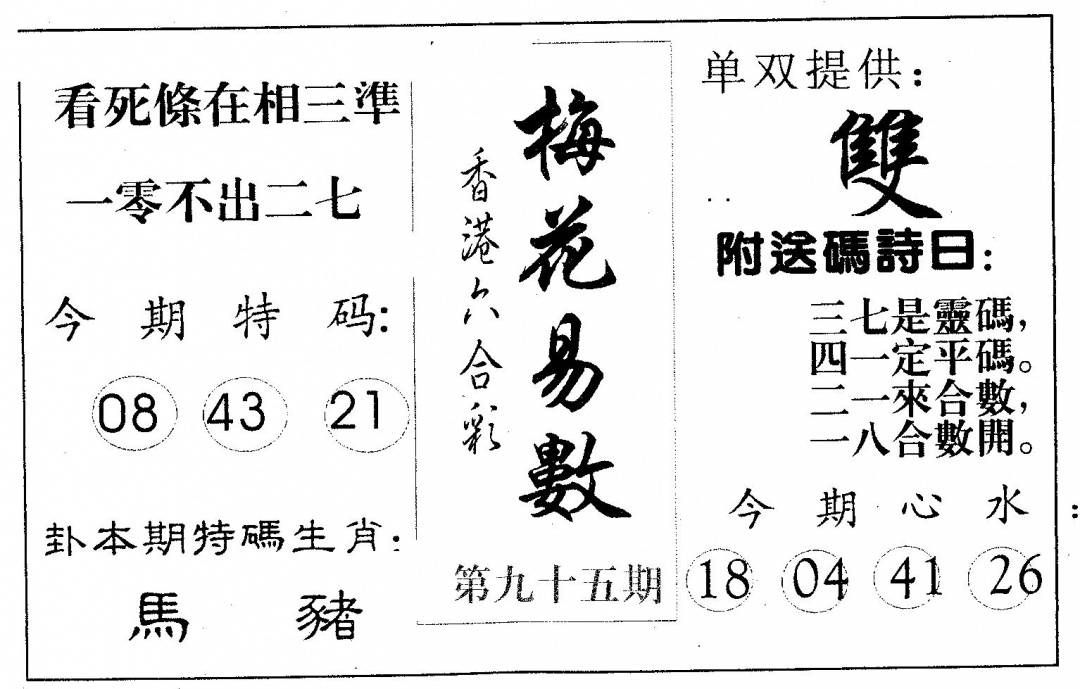 看死條在相三準
一零不出二七
今期特码:
08 43 21
卦本期特碼生肖:
馬 豬
梅花易數
香港六合彩
第九十五期
单双提供:
雙
附送碼詩曰:
三七是靈碼,
四一定平碼。
二一來合數,
一八合數開。
今期心水:
18 04 41 26